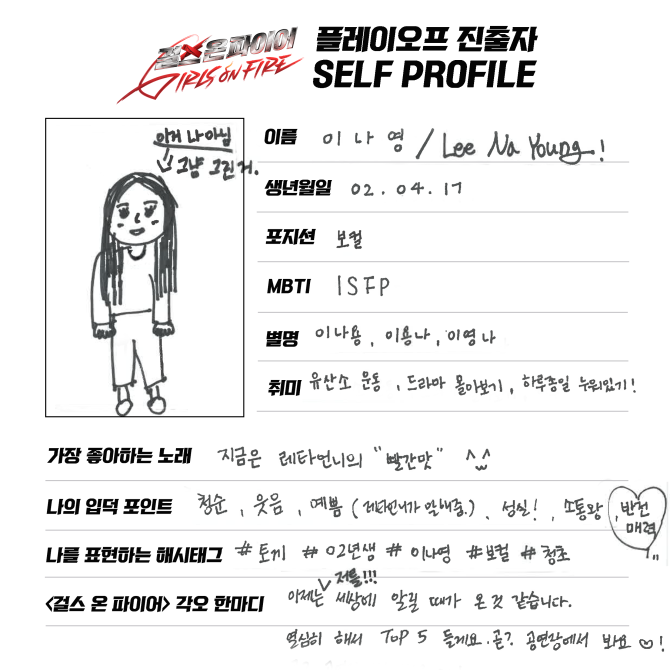 걸스온파이어 플레이오프 진출자
GIRLS ON FIRE SELF PROFILE
이거 나 아님
그냥 그린 거.
이름 이 나 영 / Lee Na Young!
생년월일 02. 04. 17
포지션 보컬
MBTI ISFP
별명 이나용, 이용나, 이영나
취미 유산소 운동, 드라마 몰아보기, 하루종일 누워있기!
가장 좋아하는 노래 지금은 레타언니의 "빨간맛" ^^
나의 입덕 포인트 청순, 웃음, 예쁨 (레타언니가 말해줌.), 성실!, 소통왕, 반전
매력
나를 표현하는 해시태그 #토끼 #02년생 #이나영 #보컬 #청초
저를!!!
<걸스 온 파이어> 각오 한마디 이제는 세상에 알릴 때가 온 것 같습니다.
열심히 해서 TOP 5 들게요. 곧? 공연장에서 봐요 ♡!